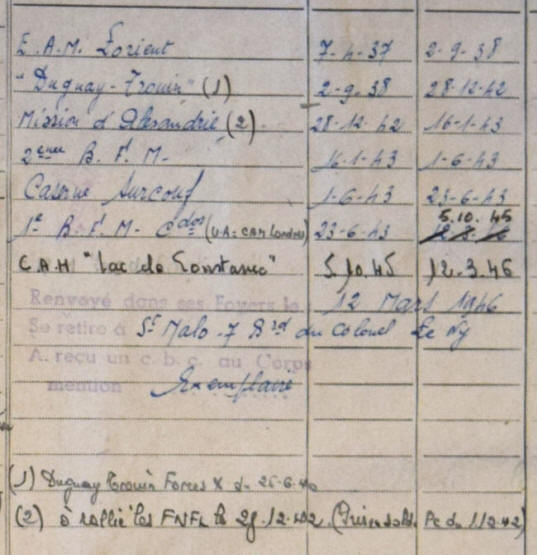 E.A.M. Lorient 7-4-37 2-9-38
"Duguay-Trouin" (1) 2-9-38 28-12-42
Mission d'Alexandrie (2) 28-12-42 16-1-43
2ème B.F.M- 16-1-43 1-6-43
Caserne Surcouf 1-6-43 23-6-43
1e B.F.M- Cdos (U.A = CAM Londres) 23-6-43 5.10.45
C.A.H "Lac de Constance" 5.10.45 12-3-46
Renvoyé dans ses Foyers le 12 Mars 1946
Se retire à St Malo - 7 Brd du Colonel Le
A. reçu un c. b. c. au Corps
mention Exemplaire
(1) Duguay Trouin Forces X du 25-6-40
(2) à rallié les FNFL le 28.12.42